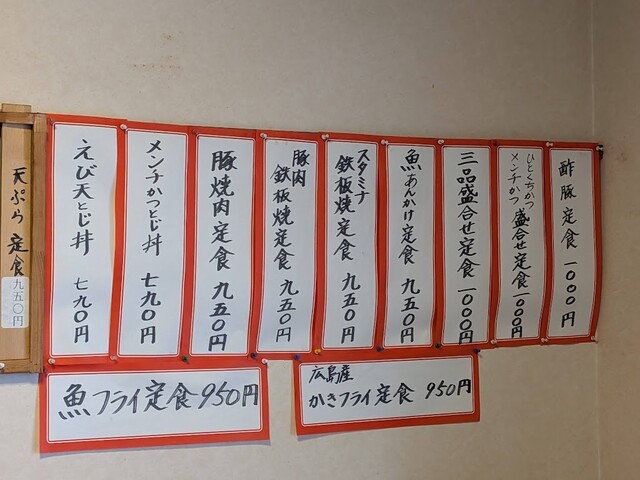 酢豚定食 一〇〇〇円
ひとくちかつ
メンチかつ 盛合せ定食 一〇〇〇円
三品盛合せ定食 一〇〇〇円
魚あんかけ定食 九五〇円
スタミナ
鉄板焼定食 九五〇円
豚肉
鉄板焼定食 九五〇円
豚焼肉定食 九五〇円
メンチかつとじ丼 七九〇円
えび天とじ丼 七九〇円
天ぷら定食 九五〇円
魚フライ定食 950円
広島産
かきフライ定食 950円